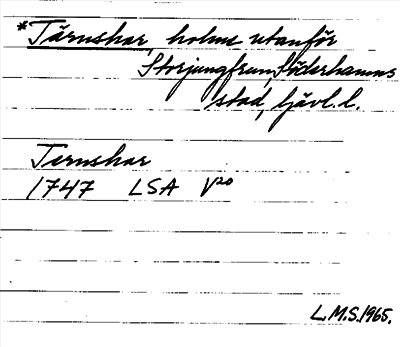 *Tärnshar, holme utanför
Storjungfrun, Söderhamns
stad, Gävl. l.
Ternshar
1747 LSA V20
L.M.S. 1965.